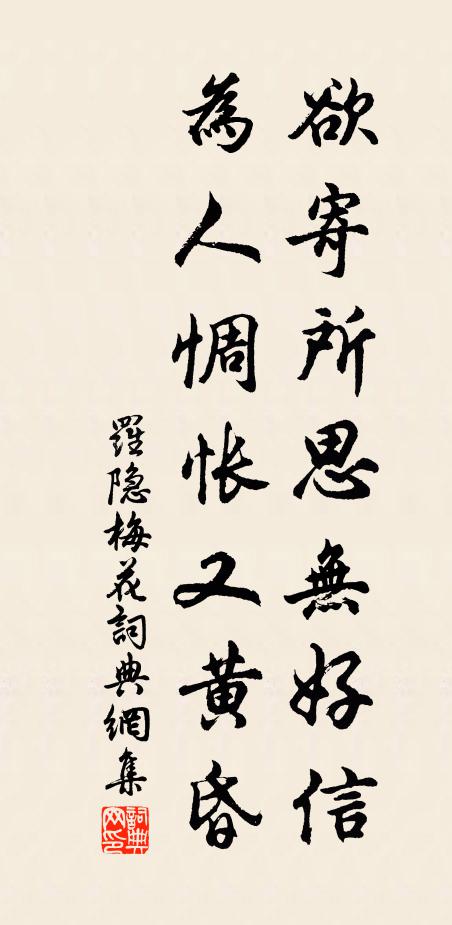 欲寄所思無好信
為人惆怅又黄昏
羅隐梅花詞典網集
詞典网印